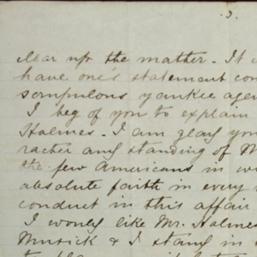 .3.
clear up the matter. It
have one's statement con
scrupulous yankee agen
I beg of you to explain
Holmes. I am glad you
racter and standing of M
the few Americans in w
absolute faith in every
conduct in this affair
I would like Mr. Holmes
Musick & I stand in